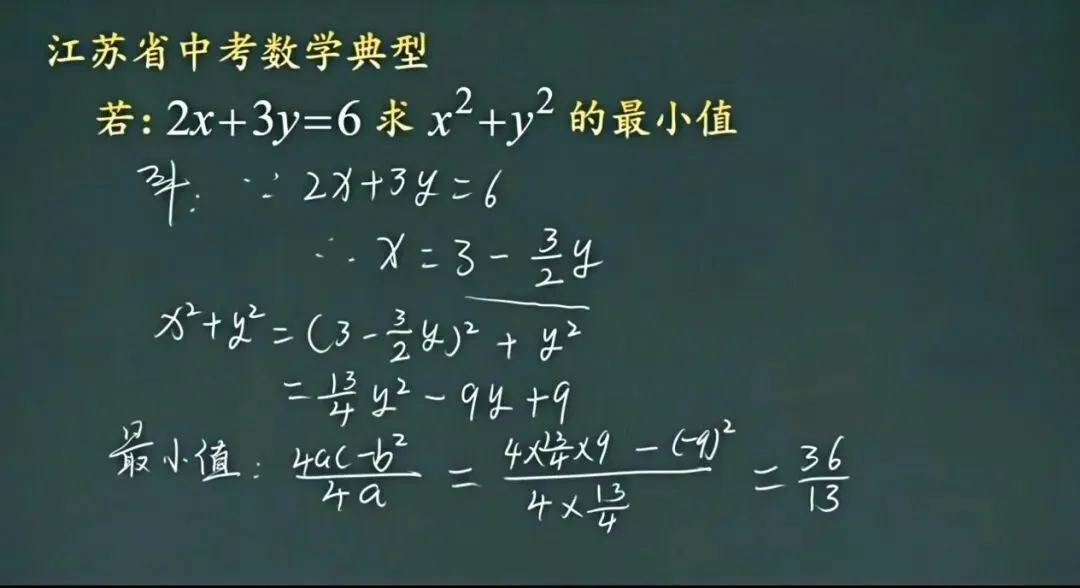 江苏省中考数学典型
若:2x+3y=6 求 x²+y² 的最小值
解: ∵ 2x+3y=6
∴ x = 3 - 3/2 y
x²+y² = (3 - 3/2 y)² + y²
= 13/4 y² - 9y + 9
最小值: (4ac-b²)/(4a) = (4×13/4×9 - (-9)²)/(4×13/4) = 36/13